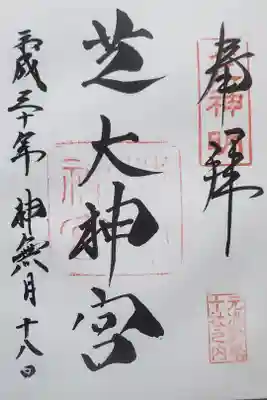 奉拝
芝大神宮
平成三十年 神無月 十八日